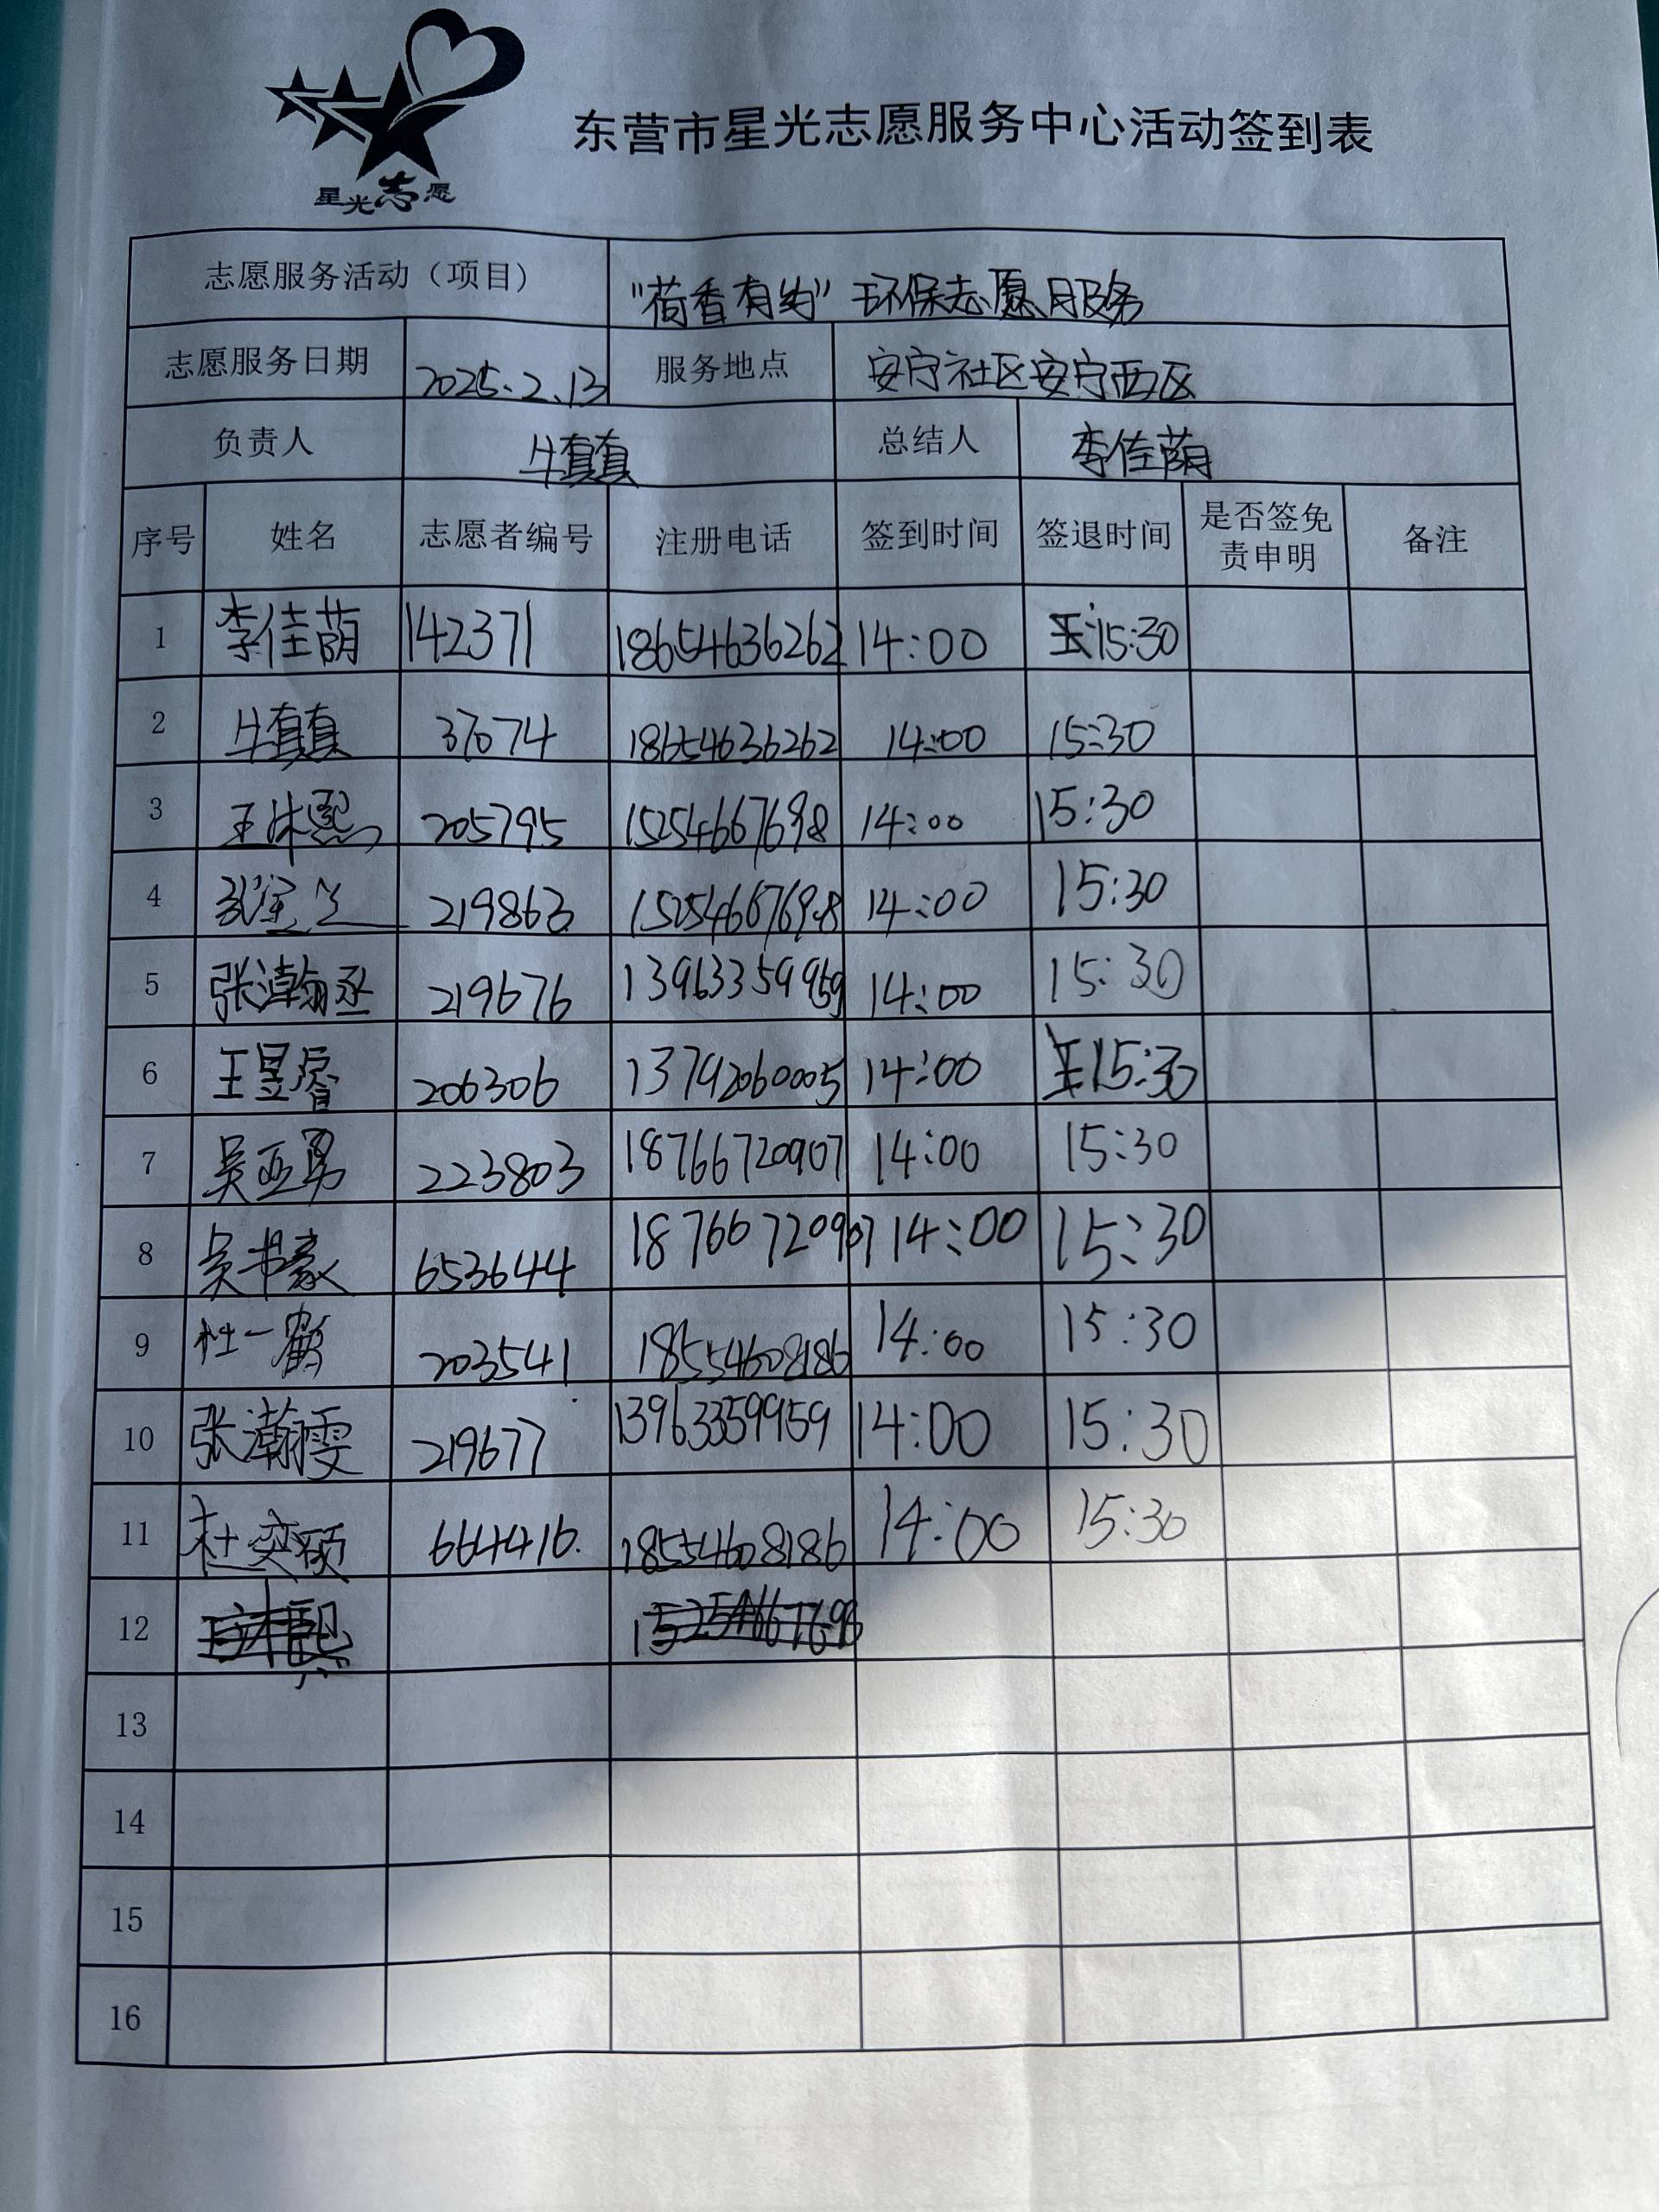 星光志愿
东营市星光志愿服务中心活动签到表
志愿服务活动（项目） "荷香有约"环保志愿服务
志愿服务日期 2025.2.13 服务地点 安宁社区安宁西区
负责人 牛真真 总结人 李佳荫
序号 姓名 志愿者编号 注册电话 签到时间 签退时间 是否签免责申明 备注
1 李佳荫 142371 18654636262 14:00 15:30
2 牛真真 37674 18654636262 14:00 15:30
3 王沐熙 205795 15254667698 14:00 15:30
4 219863 15254667698 14:00 15:30
5 张瀚丞 219676 13963359959 14:00 15:30
6 王昱睿 206306 13792060005 14:00 15:30
7 吴亚男 223803 18766720907 14:00 15:30
8 吴书豪 653644 18766720907 14:00 15:30
9 杜一鹤 203541 18554608186 14:00 15:30
10 张瀚雯 219677 13963359959 14:00 15:30
11 杜奕硕 664416. 18554608186 14:00 15:30
12 15254667698
13
14
15
16